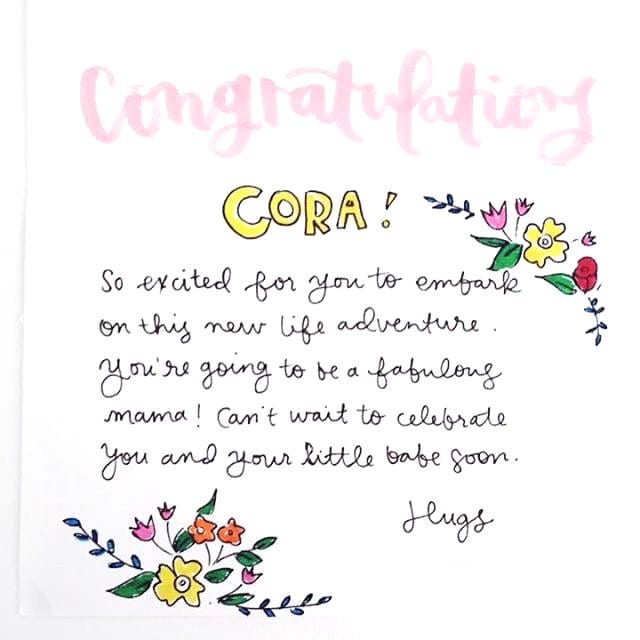 Congratulations
CORA!
So excited for you to embark
on this new life adventure.
You're going to be a fabulous
mama! Can't wait to celebrate
you and your little babe soon.
Hugs